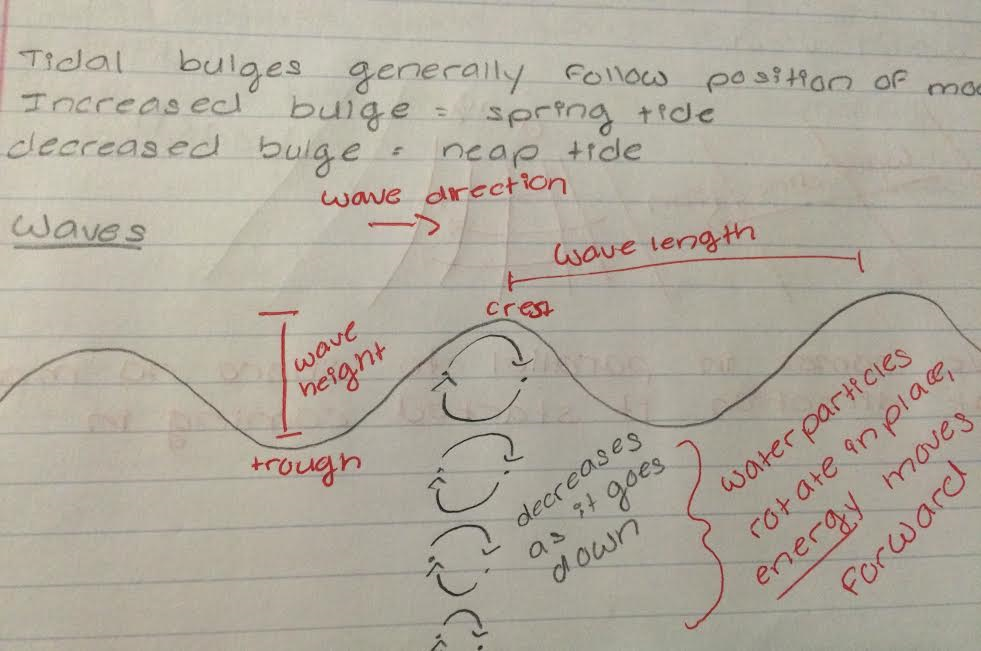 Tidal bulges generally follow position of
Increased bulge = spring tide
decreased bulge = neap tide
wave direction
Waves
wave length
crest
wave
height
trough
decreases
as it goes
down
water particles
rotate in place,
energy moves
forward